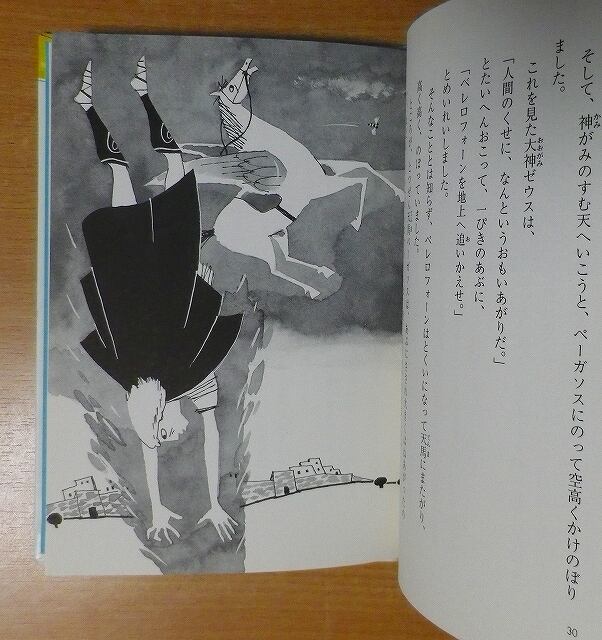 そして、神がみのすむ天へいこうと、ペーガソスにのって空高くかけのぼり
ました。
これを見た大神ゼウスは、
「人間のくせに、なんというおもいあがりだ。」
とたいへんおこって、一ぴきのあぶに、
「ベレロフォーンを地上へ追いかえせ。」
とめいれいしました。
そんなこととは知らず、ベレロフォーンはとくいになって天馬にまたがり、
高く高く、のぼっていました。
30